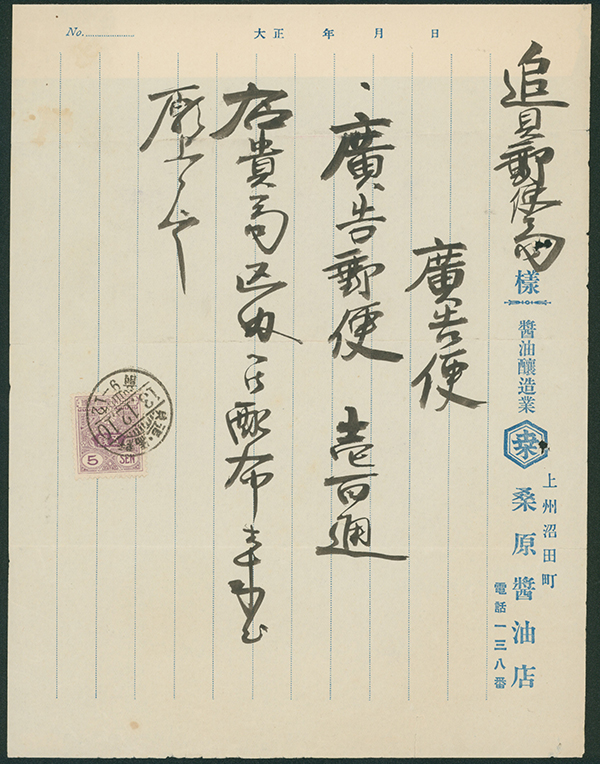 No.
大正 年 月 日
追貝郵便局
様
醬油釀造業
桒
上州沼田町
桑原醬油店
電話一三八番
廣告便
、廣告郵便 壱百通
右貴局区内ニ配布
願上候也
5 SEN
13.12.10